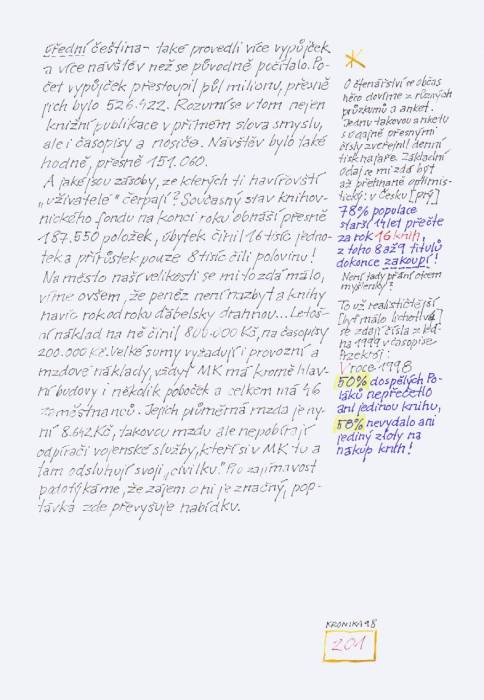 úřední čeština - také provedli více výpůjček
a více návštěv než se původně počítalo. Po-
čet výpůjček přestoupil půl milionu, přesně
jich bylo 526.422. Rozumí se v tom nejen
knižní publikace v přímém slova smyslu,
ale i časopisy a nosiče. Návštěv bylo také
hodně, přesně 151.060.
A jaké jsou zásoby, ze kterých ti havířovští
„uživatelé" čerpají? Současný stav knihov-
nického fondu na konci roku obnáší přesně
187.550 položek, úbytek činil 16 tisíc jedno-
tek a přírůstek pouze 8 tisíc čili polovinu!
Na město naší velikosti se mi to zdá málo,
víme ovšem, že peněz není nazbyt a knihy
navíc rok od roku ďábelsky drahnou... Letoš-
ní náklad na ně činil 800.000 Kč, na časopisy
200.000 Kč. Velké sumy vyžadují i provozní a
mzdové náklady, vždyť MK má kromě hlav-
ní budovy i několik poboček a celkem má 46
zaměstnanců. Jejich průměrná mzda je ny-
ní 8.642 Kč, takovou mzdu ale nepobírají
odpírači vojenské služby, kteří si v MK tu a
tam odsluhují svoji „civilku". Pro zajímavost
podotýkáme, že zájem o ni je značný, pop-
távka zde převyšuje nabídku.
O čtenářství se občas
něco dovíme z různých
průzkumů a anket.
Jednu takovou anketu
s údajně přesnými
čísly zveřejnil denní
tisk na jaře. Základní
údaj se mi zdá být
až přehnaně optimis-
tický: v Česku [prý]
78% populace
starší 14 let přečte
za rok 16 knih,
z toho 8 až 9 titulů
dokonce zakoupí!
Není tady přání otcem
myšlenky?
To už realističtější
[byť málo lichotivá]
se zdají čísla z led-
na 1999 v časopise
Przekrój:
V roce 1998
50% dospělých Po-
láků nepřečetlo
ani jedinou knihu,
58% nevydalo ani
jediný zloty na
nákup knih!
KRONIKA 98
201